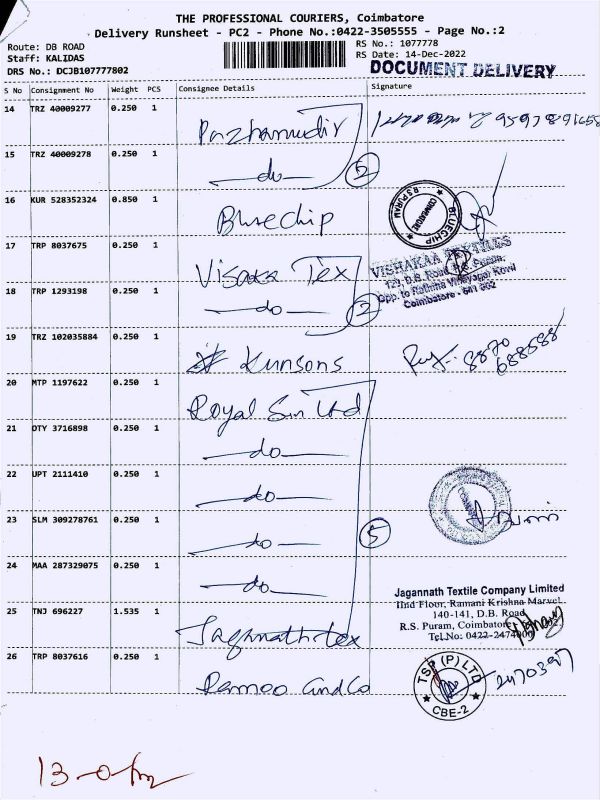 THE PROFESSIONAL COURIERS, Coimbatore
Delivery Runsheet - PC2 - Phone No.:0422-3505555 - Page No.:2
Route: DB ROAD
Staff: KALIDAS
DRS No.: DCJB107777802
RS No.: 1077778
RS Date: 14-Dec-2022
DOCUMENT DELIVERY
S No Consignment No Weight PCS Consignee Details Signature
14 TRZ 40009277 0.250 1 Pazhamudir
15 TRZ 40009278 0.250 1 do 2
16 KUR 528352324 0.850 1 Bluechip
BLUECHIP R S PURAM COIMBATORE
17 TRP 8037675 0.250 1 Visaka Tex
VISHAKAA TEXTILES
Opp. to Rathina Vinayagar Kovil
Coimbatore - 641 002
18 TRP 1293198 0.250 1 do 2
19 TRZ 102035884 0.250 1 Kunsons 8870 688588
20 MTP 1197622 0.250 1 Royal Sun Ltd
21 OTY 3716898 0.250 1 do
22 UPT 2111410 0.250 1 do
23 SLM 309278761 0.250 1 do 5
24 MAA 287329075 0.250 1 do
25 TNJ 696227 1.535 1 Jagannath tex
Jagannath Textile Company Limited
IInd Floor, Ramani Krishna Marvel
140-141, D.B. Road
R.S. Puram, Coimbatore
Tel.No: 0422-2474000
26 TRP 8037616 0.250 1 Ramoo and Co
TSP (P) LTD CBE-2
2470397